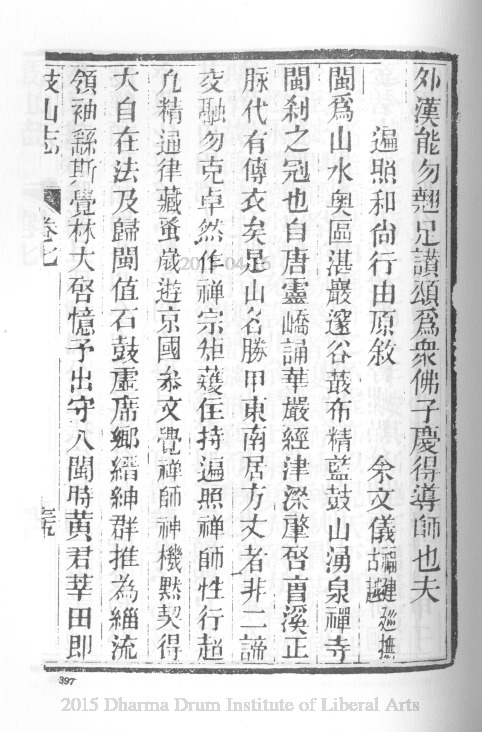 外漢能勿翹足讚頌爲衆佛子慶得導師也夫
遍照和尚行由原敘 余文儀 福建巡撫 古越
閩爲山水奧區湛巖邃谷叢布精藍鼓山湧泉禪寺
閩刹之冠也自唐靈嶠誦華嚴經津梁肇啓曹溪正
脉代有傳衣矣是山名勝甲東南居方丈者非二諦
交融勿克卓然作禪宗矩蒦住持遍照禪師性行超
凢精通律藏蚤歲遊京國叅文覺禪師神機默契得
大自在法及歸閩值石鼓虛席鄉縉紳群推為緇流
領袖繇斯覺林大啓憶予出守八閩時黃君莘田即
鼓山志 卷七
397
2015 Dharma Drum Institute of Liberal Arts